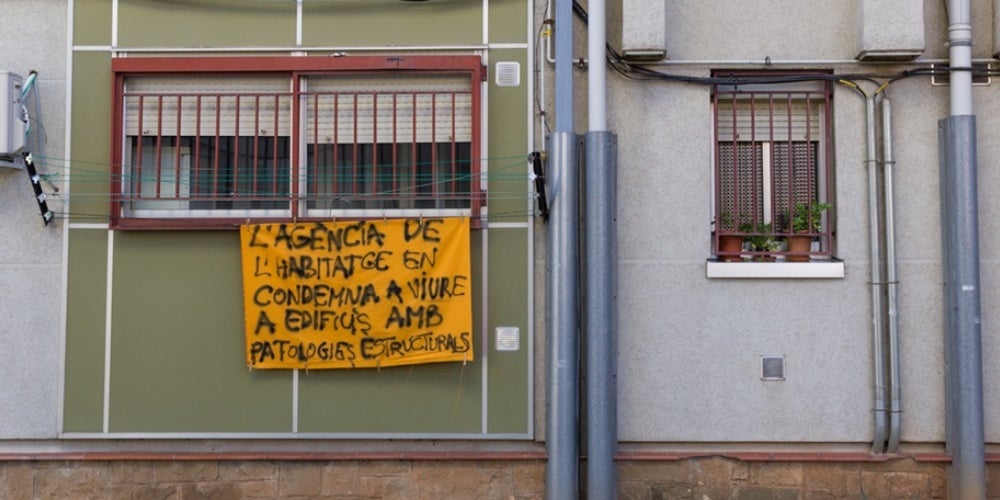 L'AGÈNCIA DE
L'HABITATGE EN
CONDEMNA A VIURE
A EDIFICIS AMB
PATOLOGIES ESTRUCTURALS